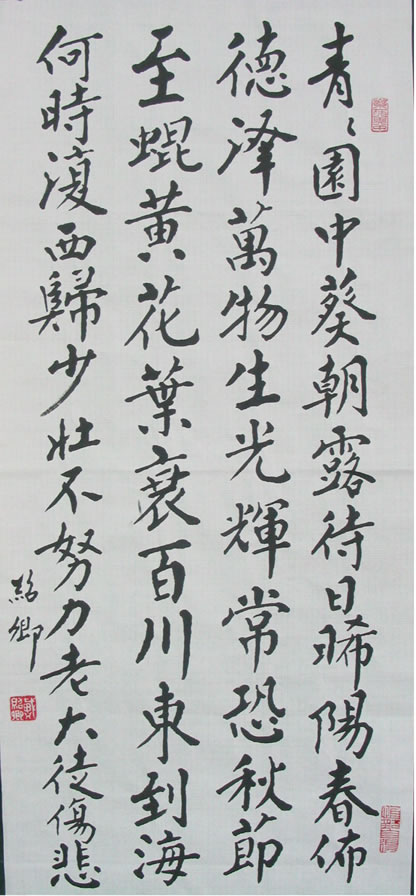 青〻園中葵朝露待日晞陽春佈
德澤萬物生光輝常恐秋節
至蜫黃花葉衰百川東到海
何時復西歸少壯不努力老大徒傷悲
紹卿